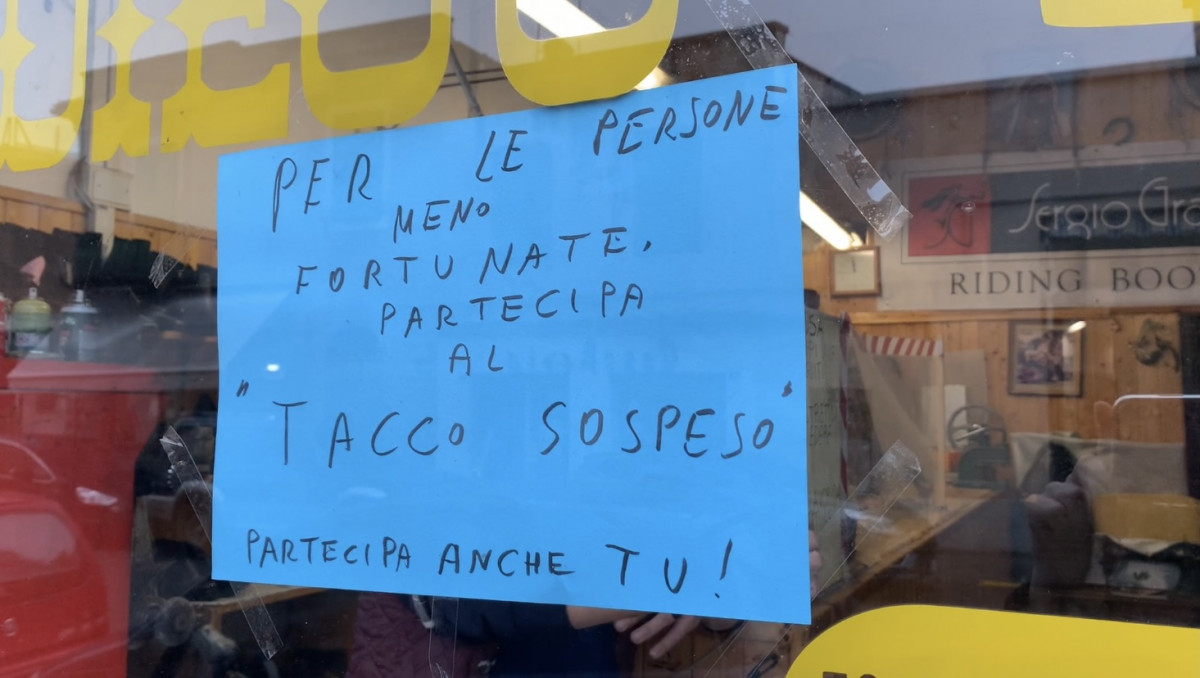 PER LE PERSONE
MENO
FORTUNATE,
PARTECIPA
AL
"TACCO SOSPESO"
PARTECIPA ANCHE TU!
Sergio Gra
RIDING BOO